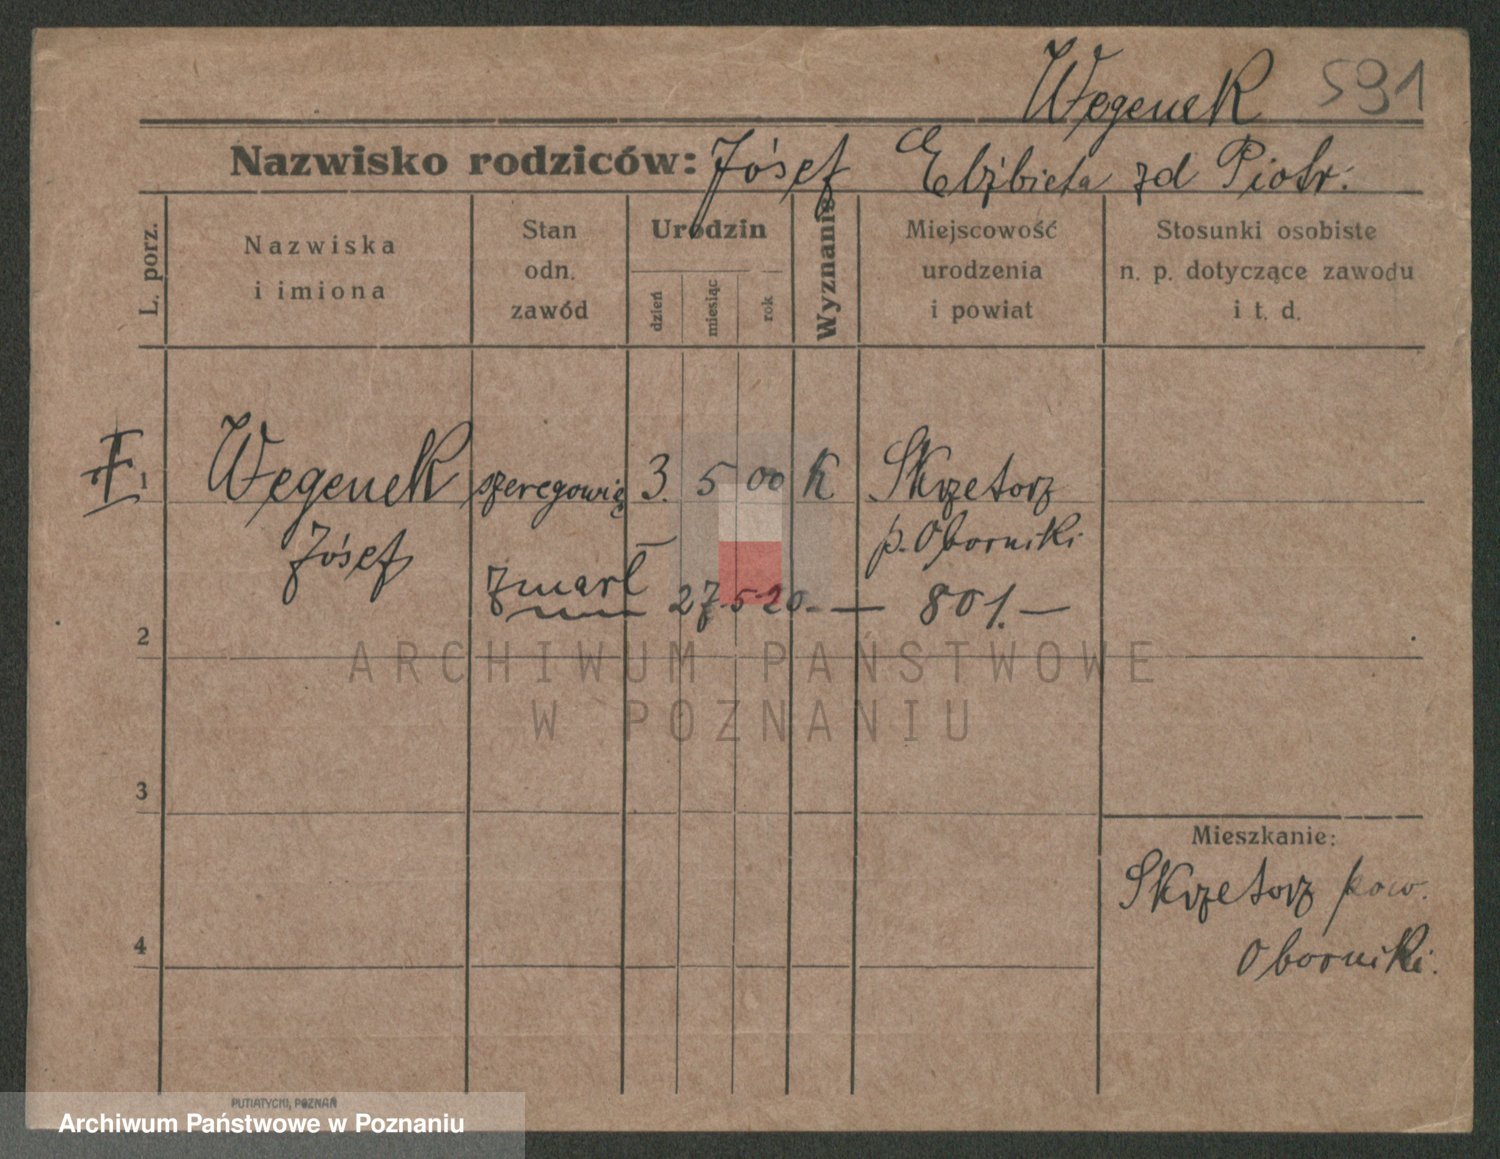 Wegenek 591
Nazwisko rodziców: Józef Elżbieta zd Piotr.
L. porz.
Nazwiska
i imiona
Stan
odn.
zawód
Urodzin
dzień
miesiąc
rok
Wyznanie
Miejscowość
urodzenia
i powiat
Stosunki osobiste
n. p. dotyczące zawodu
i t. d.
1 Wegenek szeregowię 3. 5 00 K Skrzetorz
Józef p. Oborniki
zmarł 27.5.20. — 801. —
2
ARCHIWUM PAŃSTWOWE
W POZNANIU
3
Mieszkanie:
Skrzetorz pow.
Oborniki.
4
PUTIATYCKI, POZNAŃ
Archiwum Państwowe w Poznaniu